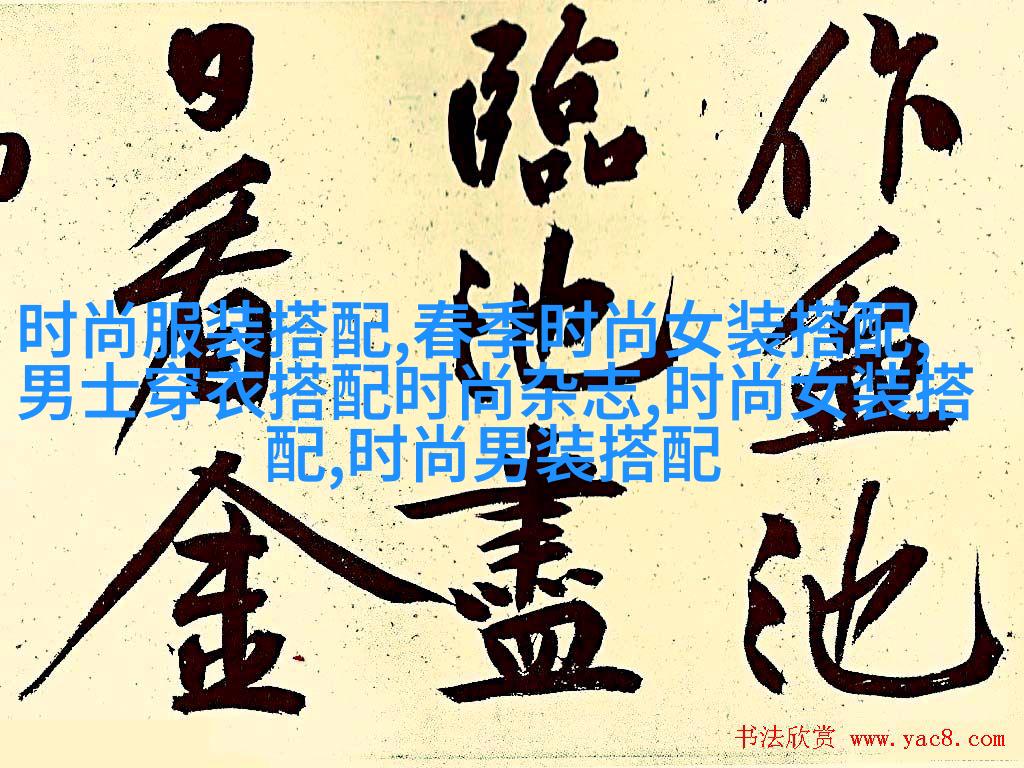 作血池
臨池盡
日看金
时尚服装搭配,春季时尚女装搭配,
男士穿衣搭配时尚杂志,时尚女装搭
配,时尚男装搭配
书法欣赏 www.yac8.com